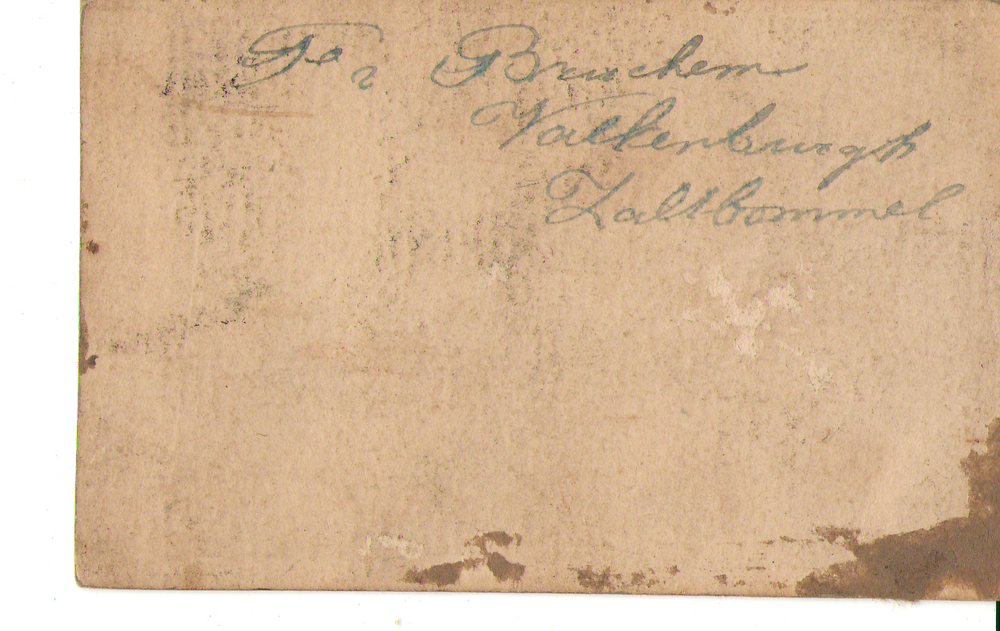 Bruchem
Valkenburgh
Zaltbommel